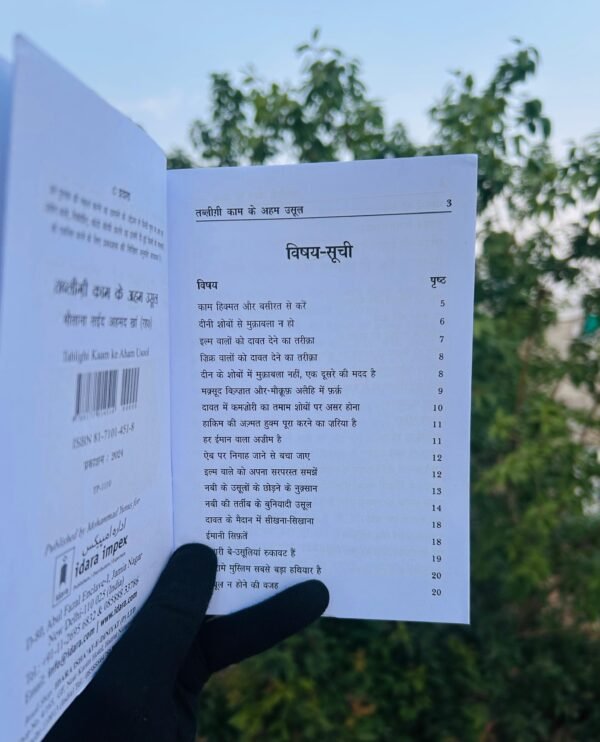 © इदारा
तब्लीग़ी काम के अहम उसूल
मौलाना सईद अहमद ख़ां (रह०)
Tablighi Kaam ke Aham Usool
ISBN 81-7101-451-8
प्रकाशन : 2024
TP-
Published by Mohammad Yunus for
ادارہ امپیکس
idara impex
D-80, Abul Fazal Enclave-I, Jamia Nagar
New Delhi-110 025 (India)
Tel.: 085888 33786
Email: info@idara.com
तब्लीग़ी काम के अहम उसूल 3
विषय-सूची
विषय पृष्ठ
काम हिक्मत और बसीरत से करें 5
दीनी शोबों से मुक़ाबला न हो 6
इल्म वालों को दावत देने का तरीक़ा 7
ज़िक्र वालों को दावत देने का तरीक़ा 8
दीन के शोबों में मुक़ाबला नहीं, एक दूसरे की मदद है 8
मक़्सूद बिज़्ज़ात और-मौक़ूफ़ अलैहि में फ़र्क़ 9
दावत में कमज़ोरी का तमाम शोबों पर असर होना 10
हाकिम की अज़्मत हुक्म पूरा करने का ज़रिया है 11
हर ईमान वाला अज़ीम है 11
ऐब पर निगाह जाने से बचा जाए 12
इल्म वाले को अपना सरपरस्त समझें 12
नबी के उसूलों के छोड़ने के नुक़्सान 13
नबी की तर्तीब के बुनियादी उसूल 14
दावत के मैदान में सीखना-सिखाना 18
ईमानी सिफ़तें 18
री बे-उसूलियां रुकावट हैं 19
मुस्लिम सबसे बड़ा हथियार है 20
न होने की वजह 20